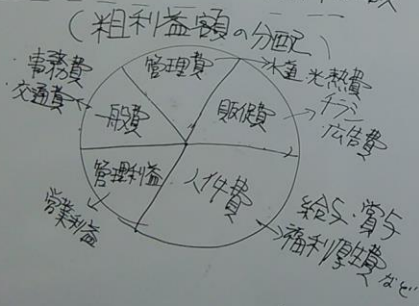 (粗利益額の分配)
事務費
交通費
管理費
水道光熱費
一般費
販促費
チラシ
広告費
管理利益
人件費
営業利益
給与・賞与
福利厚生費など